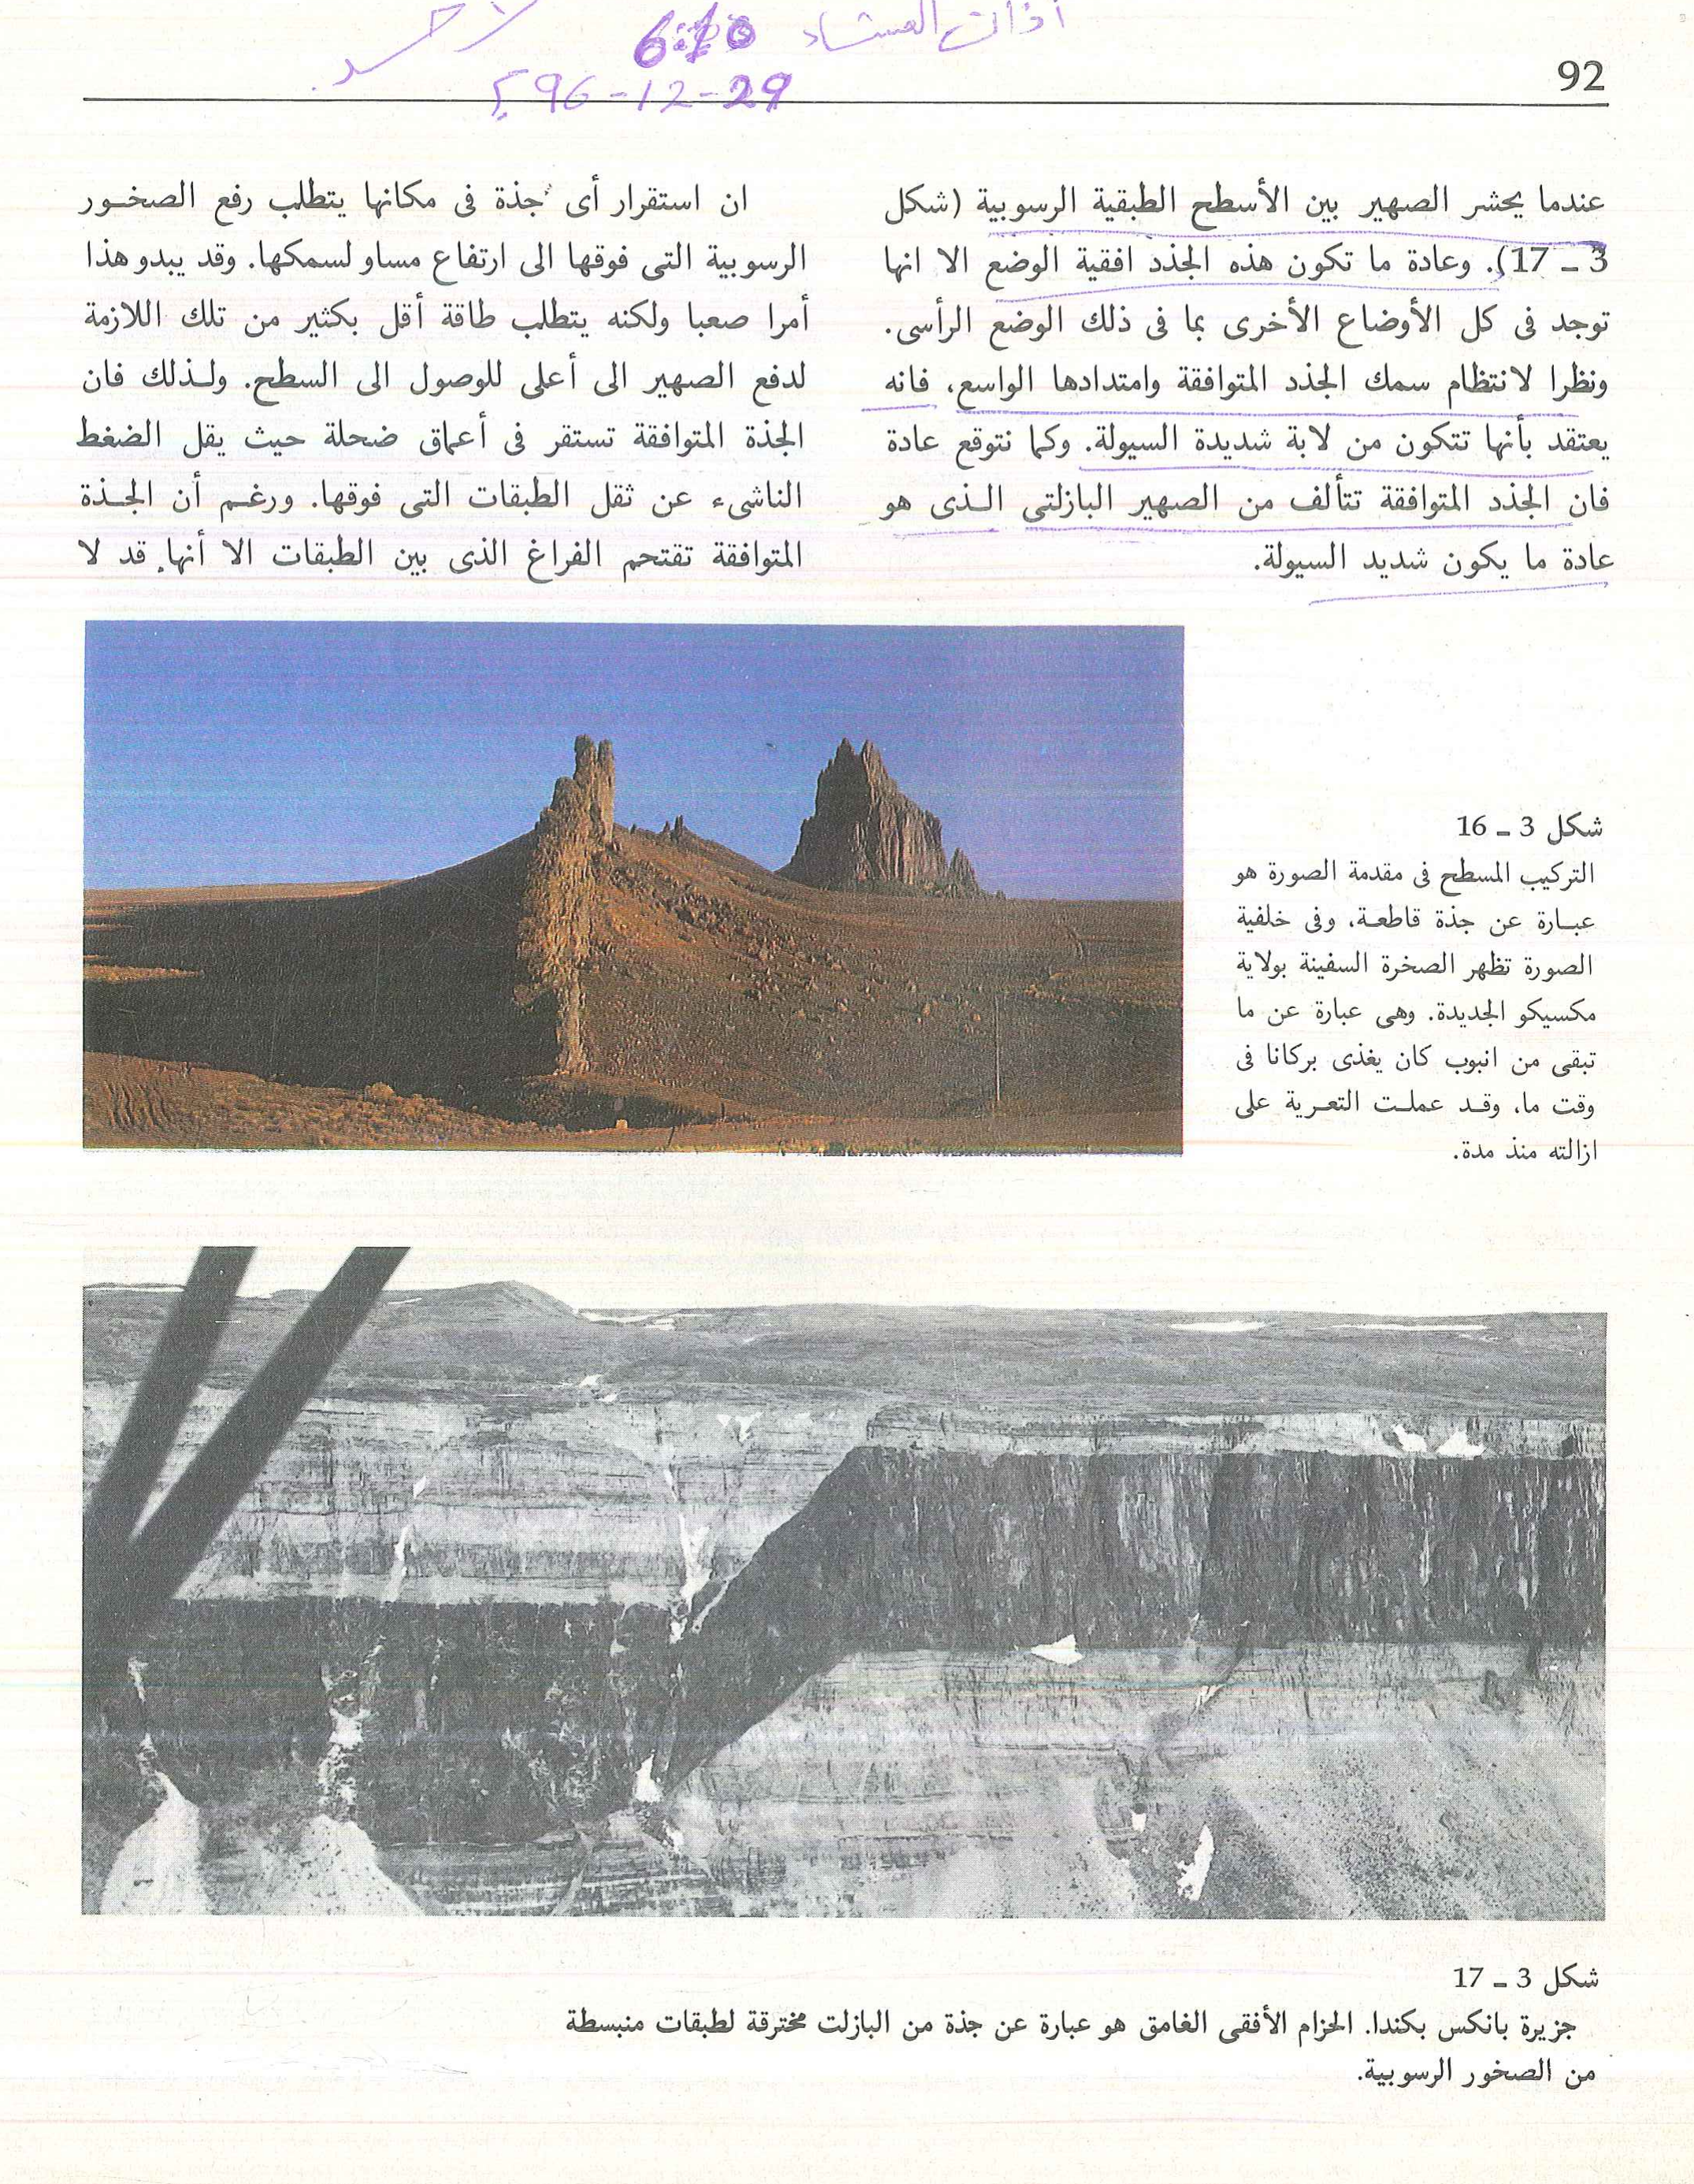 أذان العشاء 6:10
29-12-96
92
عندما يحشر الصهير بين الأسطح الطبقية الرسوبية (شكل
3 – 17). وعادة ما تكون هذه الجذد افقية الوضع الا انها
توجد فى كل الأوضاع الأخرى بما فى ذلك الوضع الرأسى.
ونظرا لانتظام سمك الجذد المتوافقة وامتدادها الواسع، فانه
يعتقد بأنها تتكون من لابة شديدة السيولة. وكما نتوقع عادة
فان الجذد المتوافقة تتألف من الصهير البازلتى الـذى هو
عادة ما يكون شديد السيولة.
ان استقرار أى جذة فى مكانها يتطلب رفع الصخـور
الرسوبية التى فوقها الى ارتفاع مساو لسمكها. وقد يبدو هذا
أمرا صعبا ولكنه يتطلب طاقة أقل بكثير من تلك اللازمة
لدفع الصهير الى أعلى للوصول الى السطح. ولـذلك فان
الجذة المتوافقة تستقر فى أعماق ضحلة حيث يقل الضغط
الناشىء عن ثقل الطبقات التى فوقها. ورغـم أن الجـذة
المتوافقة تقتحم الفراغ الذى بين الطبقات الا أنها قد لا
شكل 3 – 16
التركيب المسطح فى مقدمة الصورة هو
عبـارة عن جذة قاطعـة، وفى خلفية
الصورة تظهر الصخرة السفينة بولاية
مكسيكو الجديدة. وهى عبارة عن ما
تبقى من انبوب كان يغذى بركانا فى
وقت ما، وقـد عملـت التعـرية على
ازالته منذ مدة.
شكل 3 – 17
جزيرة بانكس بكندا. الحزام الأفقى الغامق هو عبارة عن جذة من البازلت مخترقة لطبقات منبسطة
من الصخور الرسوبية.